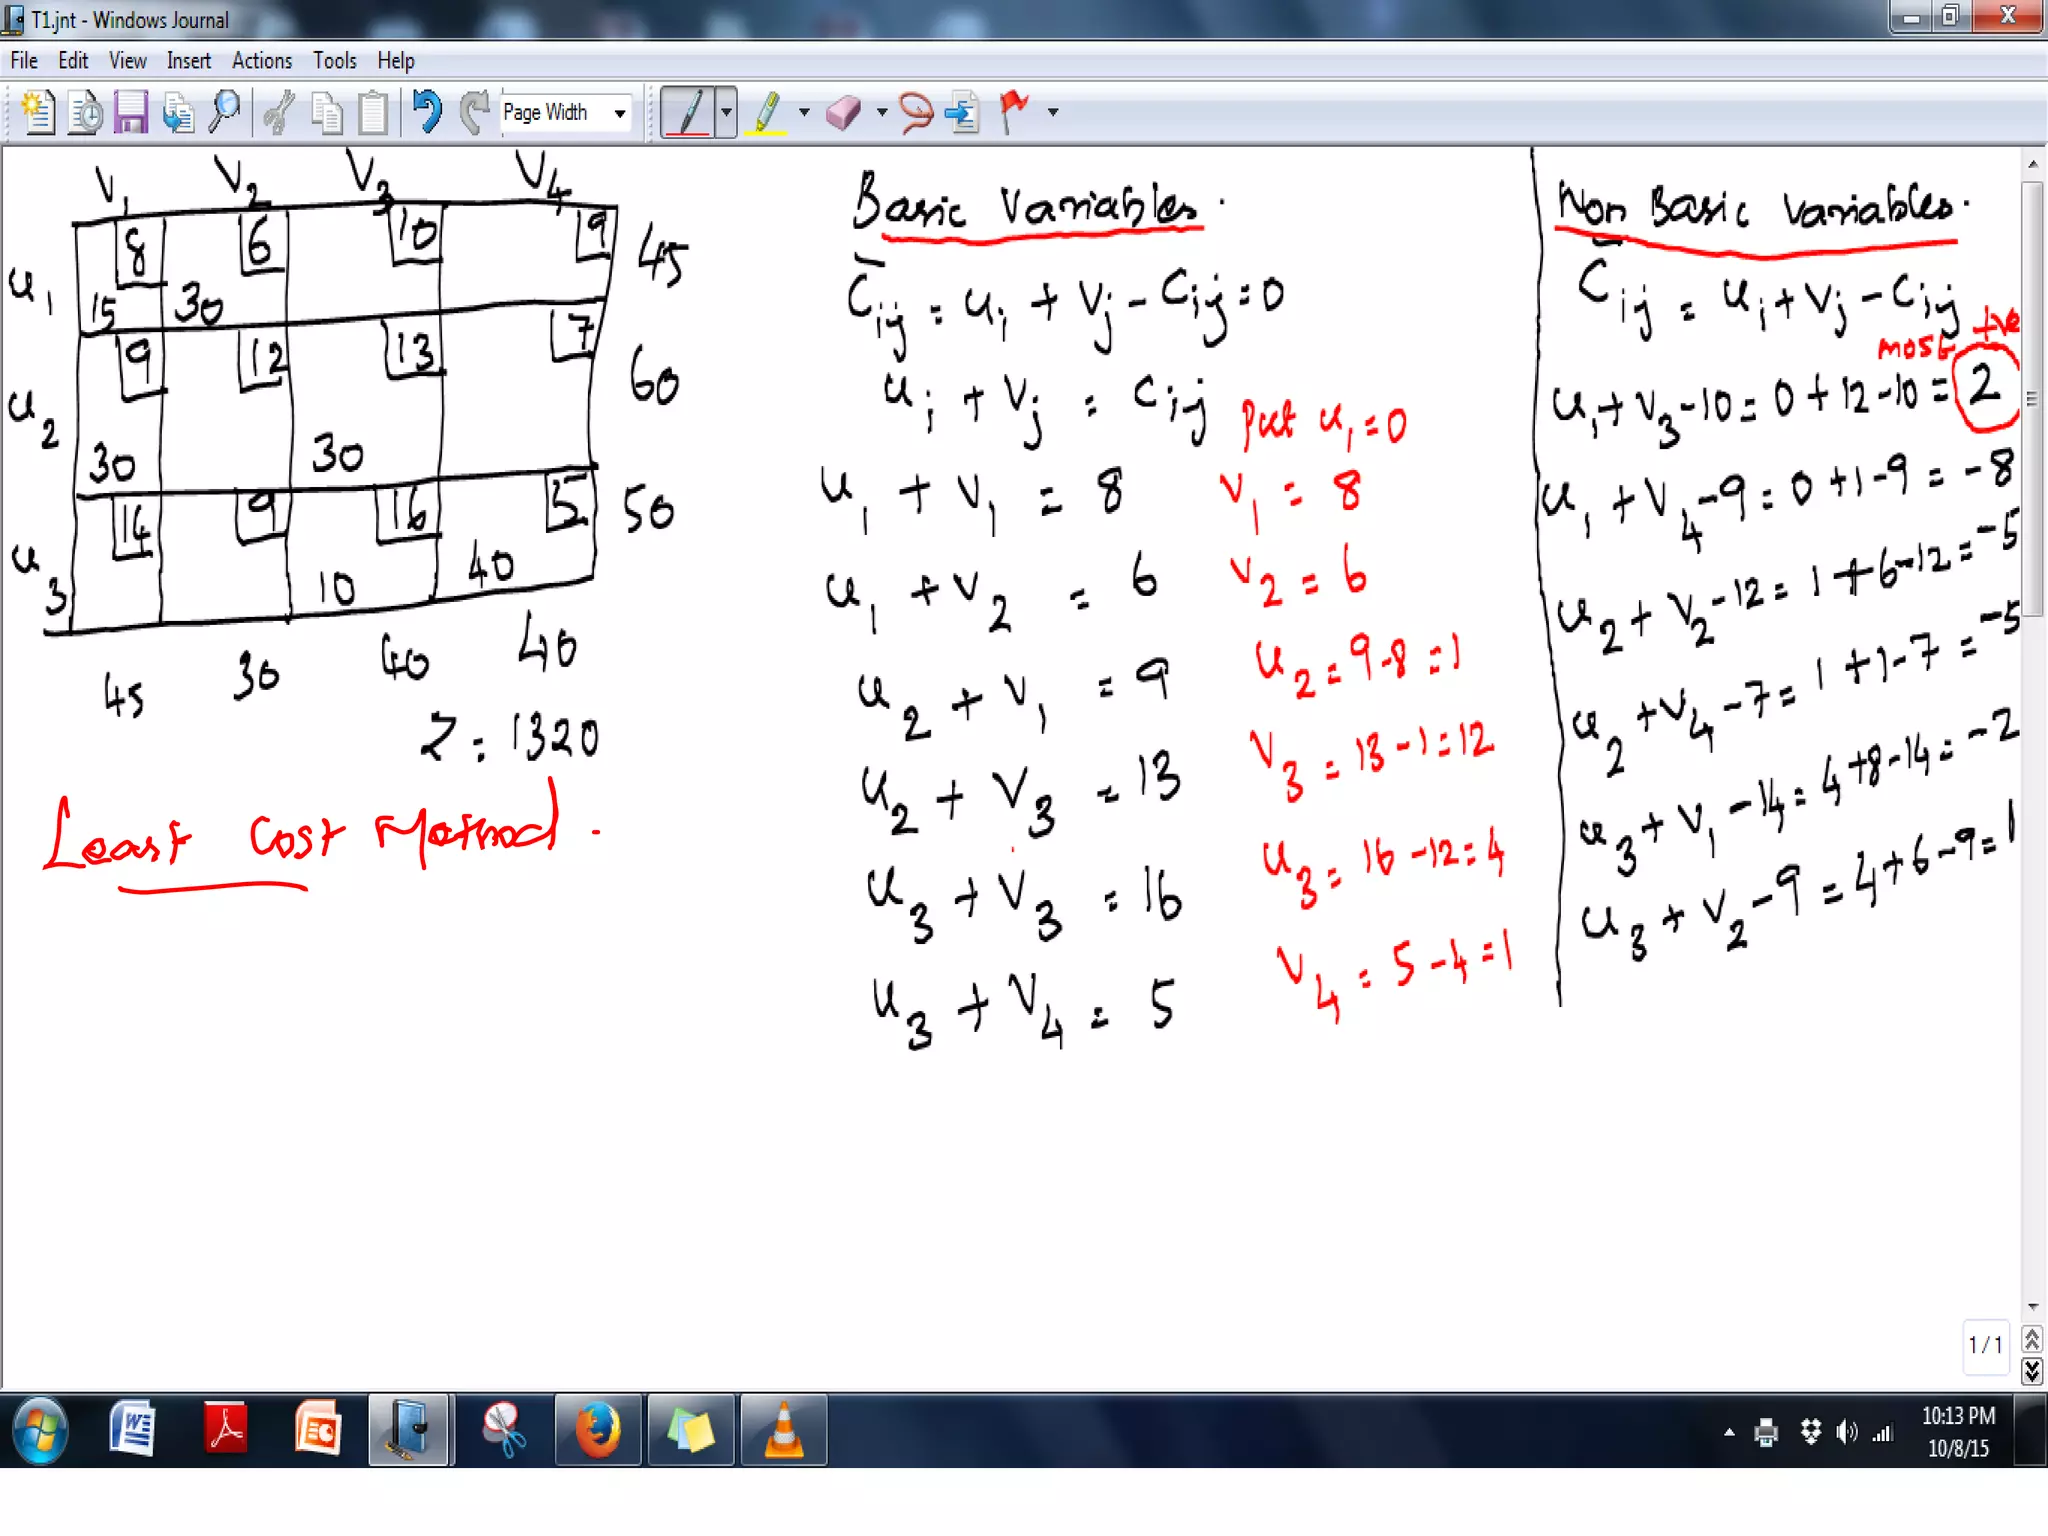 T1.jnt - Windows Journal
File Edit View Insert Actions Tools Help
Page Width
V1 V2 V3 V4
8 6 10 9
u1 15 30 45
9 12 13 7
u2 30 30 60
14 9 16 5
u3 10 40 50
45 30 40 40
Z = 1320
Least Cost Method.
Basic Variables.
C̄ij = ui + Vj - Cij = 0
ui + Vj = Cij
Put u1 = 0
u1 + V1 = 8
V1 = 8
u1 + V2 = 6
V2 = 6
u2 + V1 = 9
u2 = 9-8 = 1
u2 + V3 = 13
V3 = 13-1 = 12
u3 + V3 = 16
u3 = 16-12 = 4
u3 + V4 = 5
V4 = 5-4 = 1
Non Basic Variables.
C̄ij = ui + Vj - Cij
most +ve
u1 + V3 - 10 = 0 + 12 - 10 = 2
u1 + V4 - 9 = 0 + 1 - 9 = -8
u2 + V2 - 12 = 1 + 6 - 12 = -5
u2 + V4 - 7 = 1 + 1 - 7 = -5
u3 + V1 - 14 = 4 + 8 - 14 = -2
u3 + V2 - 9 = 4 + 6 - 9 = 1
1 / 1
10:13 PM
10/8/15